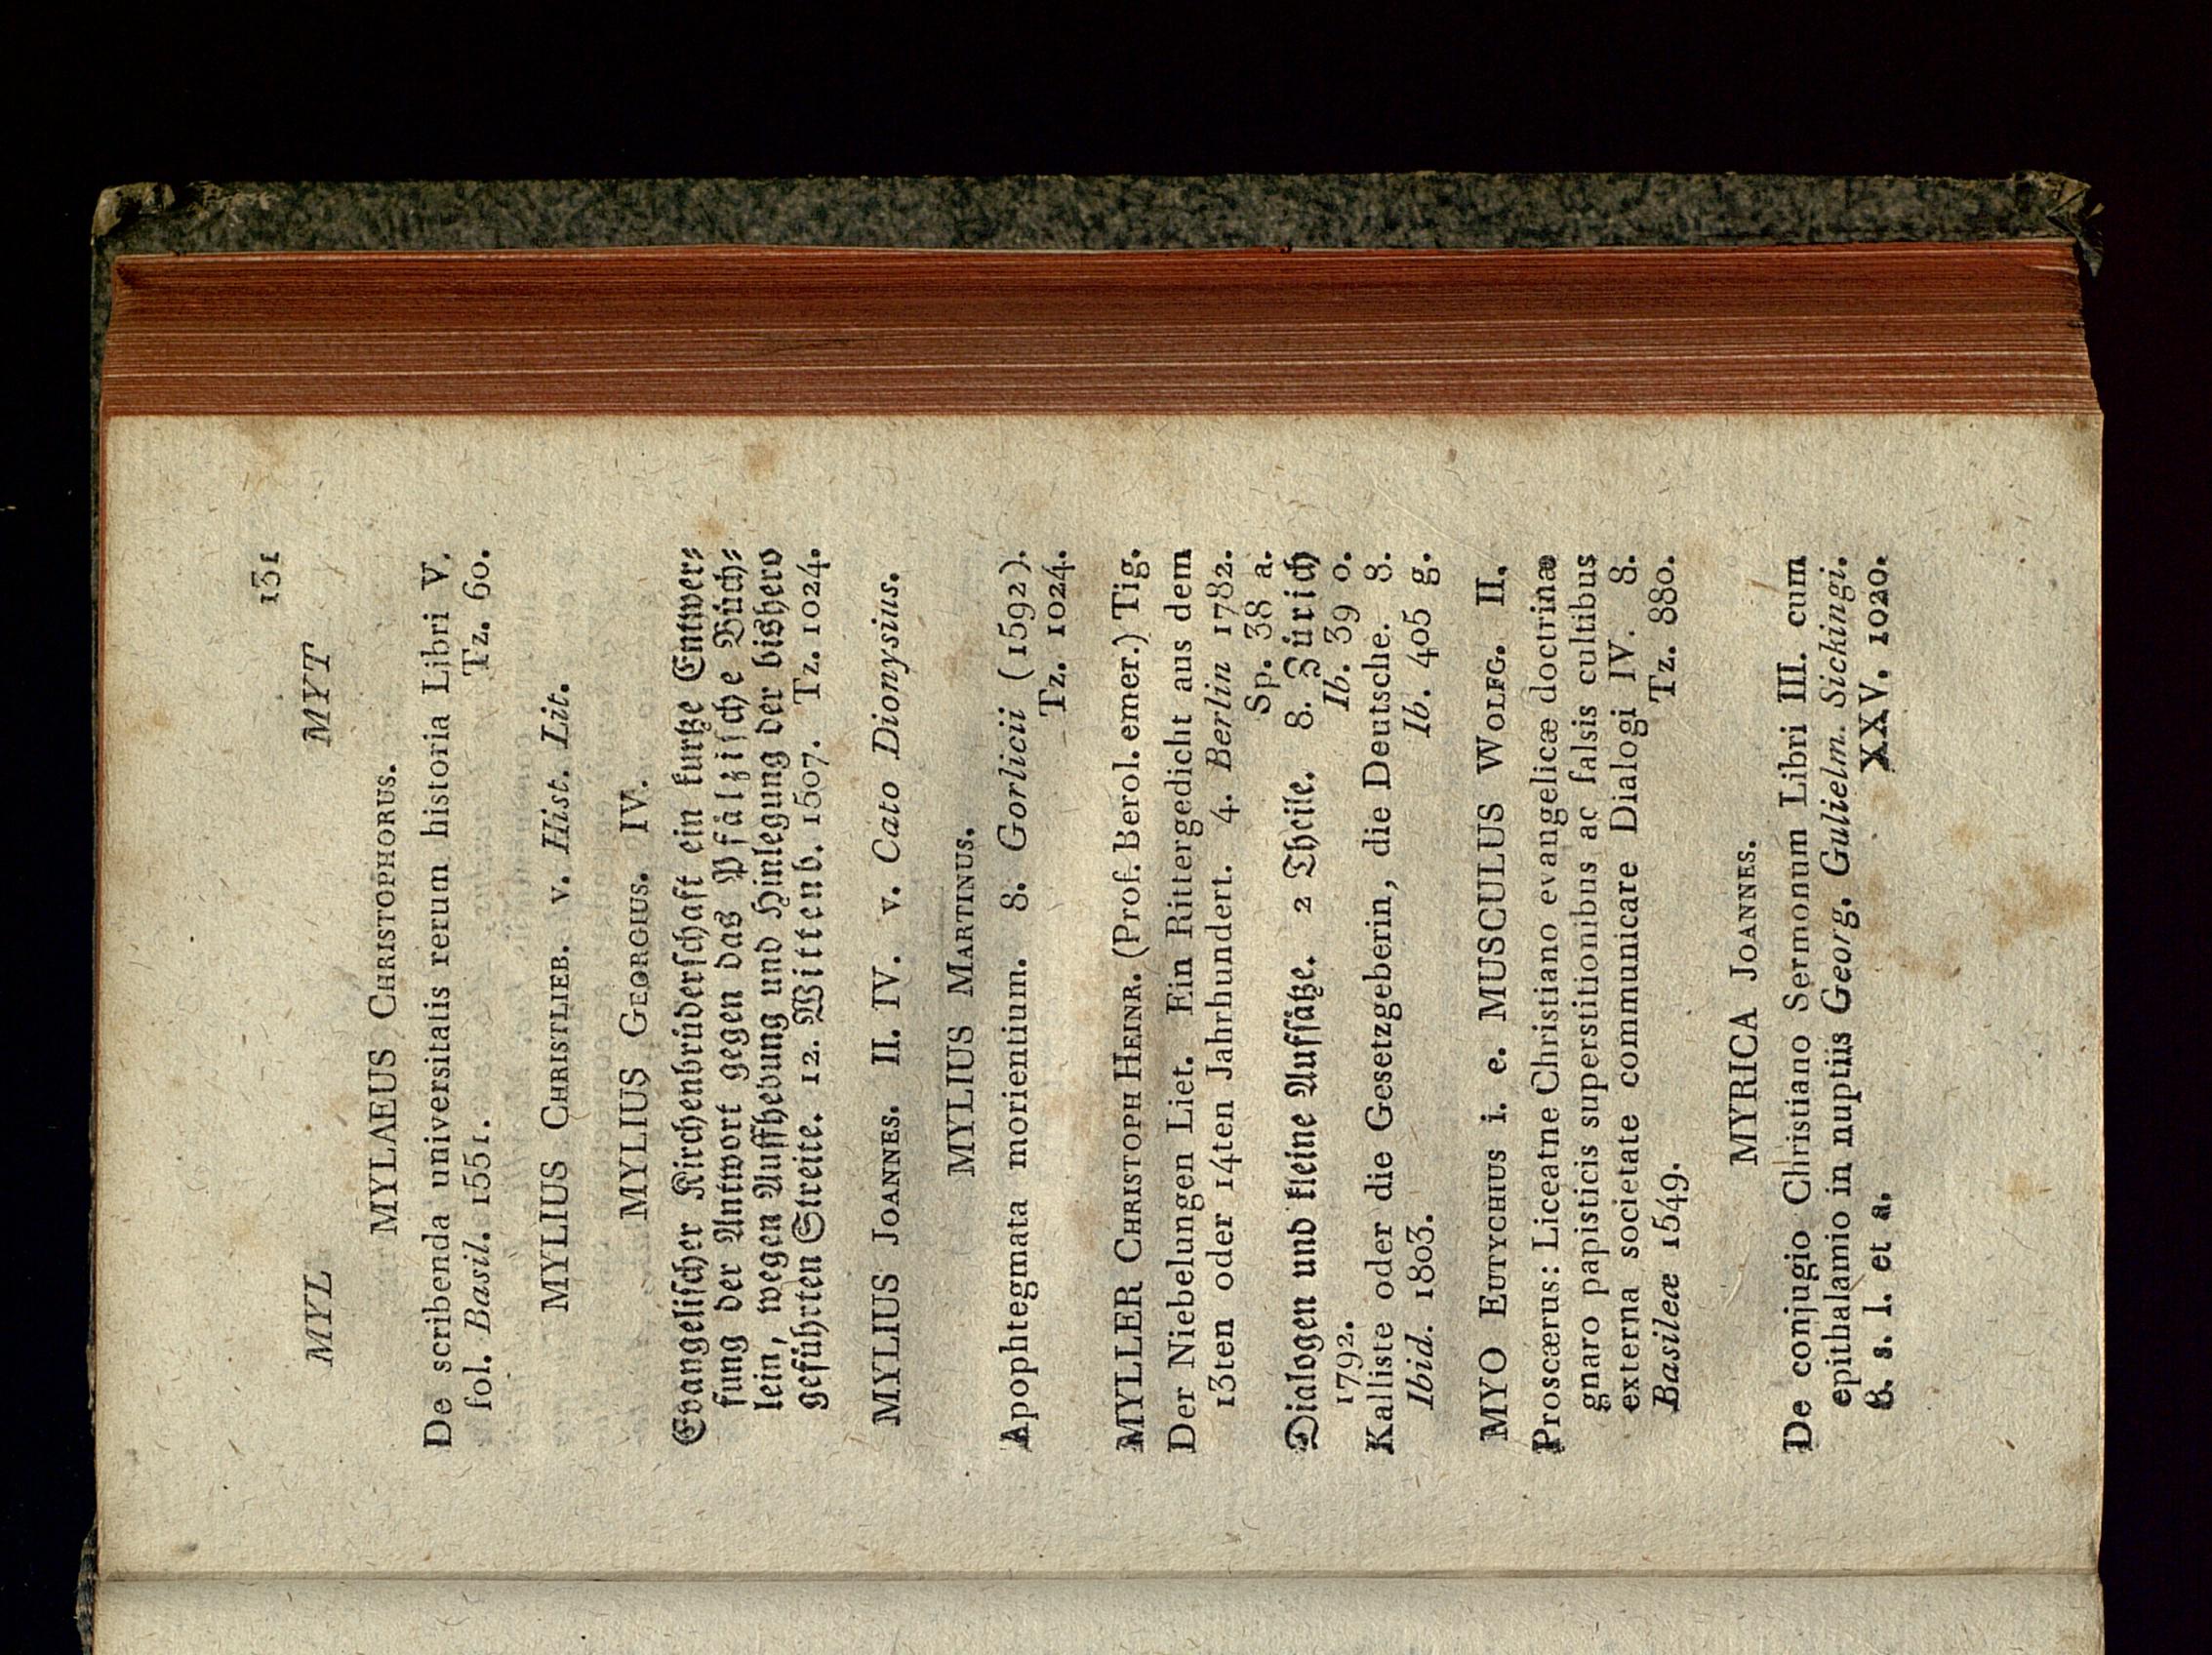 MYL MYT 131
MYLAEUS CHRISTOPHORUS.
De scribenda universitatis rerum historia Libri V.
fol. Basil. 1551. Tz. 60.
MYLIUS CHRISTLIEB. v. Hist. Lit.
MYLIUS GEORGIUS. IV.
Evangelischer Kirchenbrüderschaft ein kurtze Entwer-
fung der Antwort gegen das Pfälzische Büch-
lein, wegen Auffhebung und Hinlegung der bishero
geführten Streite. 12. Wittenb. 1607. Tz. 1024.
MYLIUS JOANNES. II. IV. v. Cato Dionysius.
MYLIUS MARTINUS.
Apophtegmata morientium. 8. Gorlicii (1592).
Tz. 1024.
MYLLER CHRISTOPH HEINR. (Prof. Berol. emer.) Tig.
Der Niebelungen Liet. Ein Rittergedicht aus dem
13ten oder 14ten Jahrhundert. 4. Berlin 1782.
Sp. 38 a.
Dialogen und kleine Aufsätze. 2 Theile. 8. Zürich
1792. Ib. 39 o.
Kalliste oder die Gesetzgeberin, die Deutsche. 8.
Ibid. 1803. Ib. 405 g.
MYO EUTYCHIUS i. e. MUSCULUS WOLFG. II.
Proscærus: Liceatne Christiano evangelicæ doctrinæ
gnaro papisticis superstitionibus ac falsis cultibus
externa societate communicare Dialogi IV. 8.
Basileæ 1549. Tz. 880.
MYRICA JOANNES.
De conjugio Christiano Sermonum Libri III. cum
epithalamio in nuptiis Georg. Gulielm. Sickingi.
8. s. l. et a. XXV. 1020.